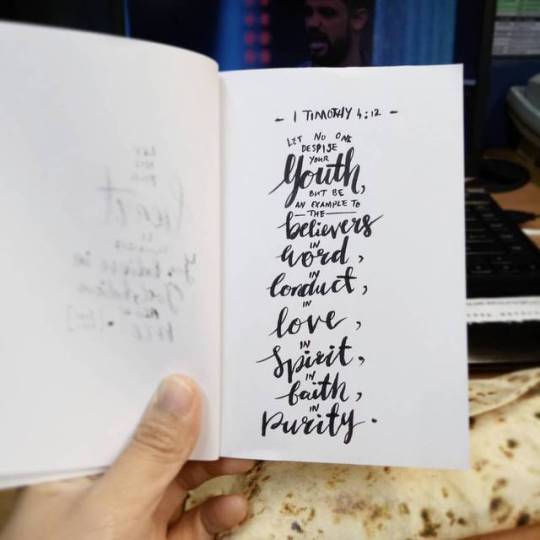 - 1 TIMOTHY 4:12 -
LET NO ONE
DESPISE
YOUR
Youth,
BUT BE
AN EXAMPLE TO
THE
believers
IN
word,
IN
conduct,
IN
love,
IN
Spirit,
IN
faith,
IN
purity.